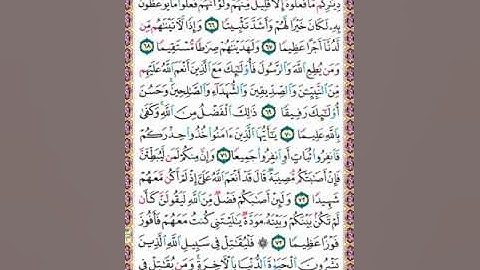 دِيَٰرِكُم مَّا فَعَلُوهُ إِلَّا قَلِيلٌ مِّنْهُمْ وَلَوْ أَنَّهُمْ فَعَلُوا۟ مَا يُوعَظُونَ
بِهِۦ لَكَانَ خَيْرًا لَّهُمْ وَأَشَدَّ تَثْبِيتًا ٦٦ وَإِذًا لَّءَاتَيْنَٰهُم مِّن
لَّدُنَّآ أَجْرًا عَظِيمًا ٦٧ وَلَهَدَيْنَٰهُمْ صِرَٰطًا مُّسْتَقِيمًا ٦٨
وَمَن يُطِعِ ٱللَّهَ وَٱلرَّسُولَ فَأُو۟لَٰٓئِكَ مَعَ ٱلَّذِينَ أَنْعَمَ ٱللَّهُ عَلَيْهِم
مِّنَ ٱلنَّبِيِّـۧنَ وَٱلصِّدِّيقِينَ وَٱلشُّهَدَآءِ وَٱلصَّٰلِحِينَ وَحَسُنَ
أُو۟لَٰٓئِكَ رَفِيقًا ٦٩ ذَٰلِكَ ٱلْفَضْلُ مِنَ ٱللَّهِ وَكَفَىٰ
بِٱللَّهِ عَلِيمًا ٧٠ يَٰٓأَيُّهَا ٱلَّذِينَ ءَامَنُوا۟ خُذُوا۟ حِذْرَكُمْ
فَٱنفِرُوا۟ ثُبَاتٍ أَوِ ٱنفِرُوا۟ جَمِيعًا ٧١ وَإِنَّ مِنكُمْ لَمَن لَّيُبَطِّئَنَّ
فَإِنْ أَصَٰبَتْكُم مُّصِيبَةٌ قَالَ قَدْ أَنْعَمَ ٱللَّهُ عَلَىَّ إِذْ لَمْ أَكُن مَّعَهُمْ
شَهِيدًا ٧٢ وَلَئِنْ أَصَٰبَكُمْ فَضْلٌ مِّنَ ٱللَّهِ لَيَقُولَنَّ كَأَن
لَّمْ تَكُنۢ بَيْنَكُمْ وَبَيْنَهُۥ مَوَدَّةٌ يَٰلَيْتَنِى كُنتُ مَعَهُمْ فَأَفُوزَ
فَوْزًا عَظِيمًا ٧٣ ۞ فَلْيُقَٰتِلْ فِى سَبِيلِ ٱللَّهِ ٱلَّذِينَ
يَشْرُونَ ٱلْحَيَوٰةَ ٱلدُّنْيَا بِٱلْءَاخِرَةِ وَمَن يُقَٰتِلْ فِى